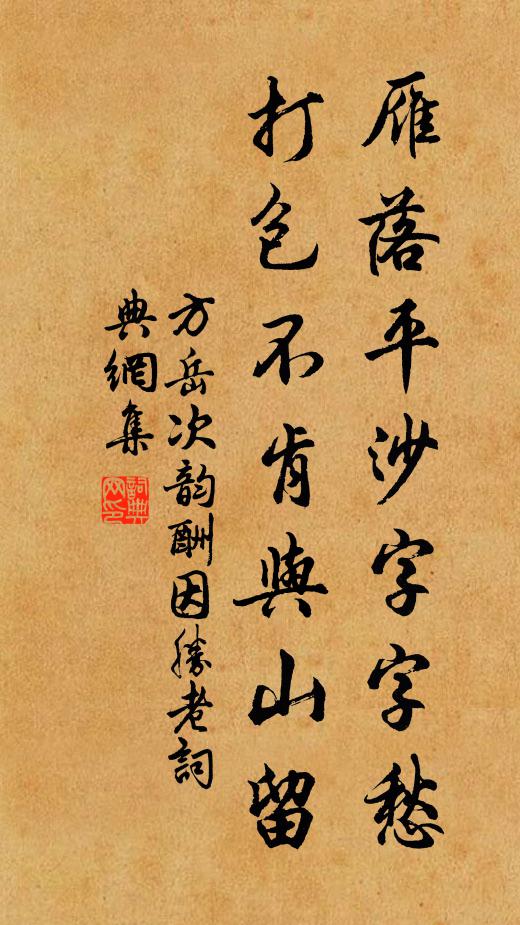 雁落平沙字字愁
打包不肯與山留
方岳次韵酬因勝老詞
典網集
詞典
网印